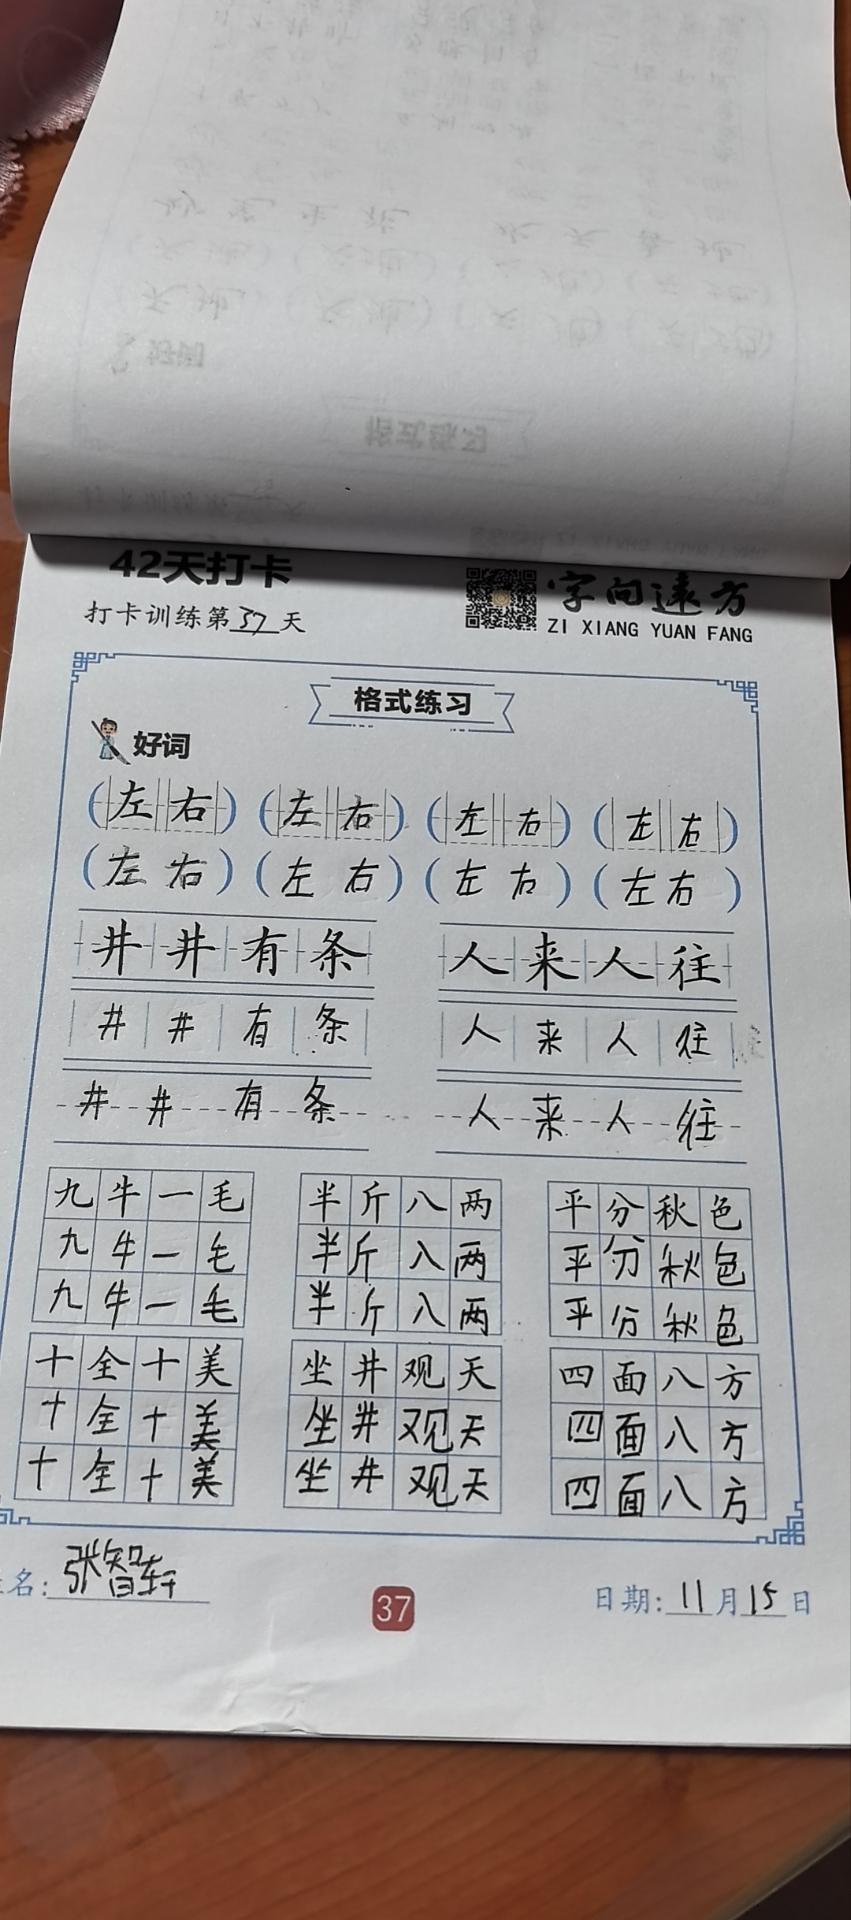 42天打卡
字向远方
打卡训练第37天
ZI XIANG YUAN FANG
格式练习
好词
(左右)(左右)(左右)(左右)
(左右)(左右)(左右)(左右)
井井有条 人来人往
井井有条 人来人往
井井有条 人来人往
九牛一毛 半斤八两 平分秋色
九牛一毛 半斤八两 平分秋色
九牛一毛 半斤八两 平分秋色
十全十美 坐井观天 四面八方
十全十美 坐井观天 四面八方
十全十美 坐井观天 四面八方
名:张智轩 日期:11月15日
37